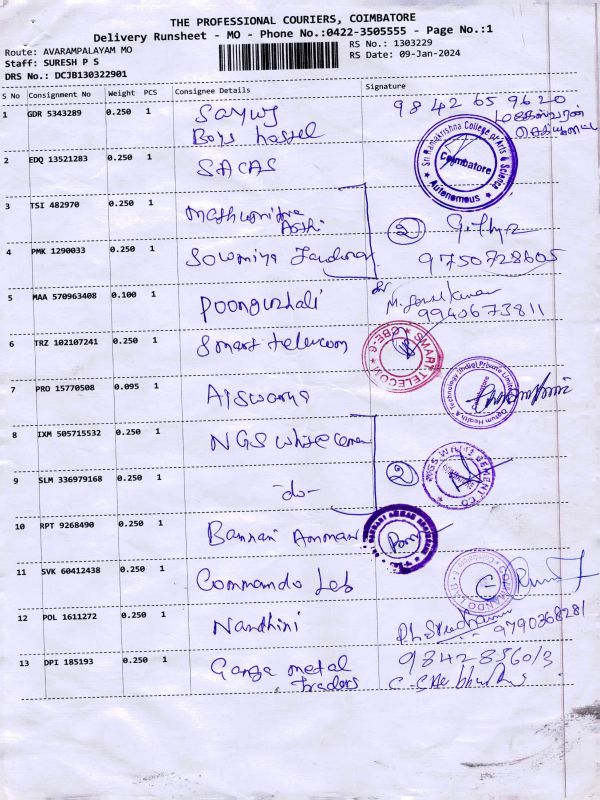 THE PROFESSIONAL COURIERS, COIMBATORE
Delivery Runsheet - MO - Phone No.:0422-3505555 - Page No.:1
Route: AVARAMPALAYAM MO
Staff: SURESH P S
DRS No.: DCJB130322901
RS No.: 1303229
RS Date: 09-Jan-2024
S No Consignment No Weight PCS Consignee Details Signature
1 GDR 5343289 0.250 1 Boys hostel 9842659620
2 EDQ 13521283 0.250 1 SACAS Sri Ramakrishna College of Arts & Science Coimbatore Autonomous
3 TSI 482970 0.250 1 2
4 PMK 1290033 0.250 1 Sowmiya 9750728605
5 MAA 570963408 0.100 1 Poonguzhali 9940673811
6 TRZ 102107241 0.250 1 Smart telecom SMART TELECOM CBE-6
7 PRO 15770508 0.095 1 Aiswarya Optum Health & Technology (India) Private Limited
8 IXM 505715532 0.250 1 NGS White Cement NGS WHITE CEMENT CO
9 SLM 336979168 0.250 1 -do- 2
10 RPT 9268490 0.250 1 Bannari Amman
11 SVK 60412438 0.250 1 Commando Leb
12 POL 1611272 0.250 1 Nandhini 9790368281
13 DPI 185193 0.250 1 Ganga metal traders